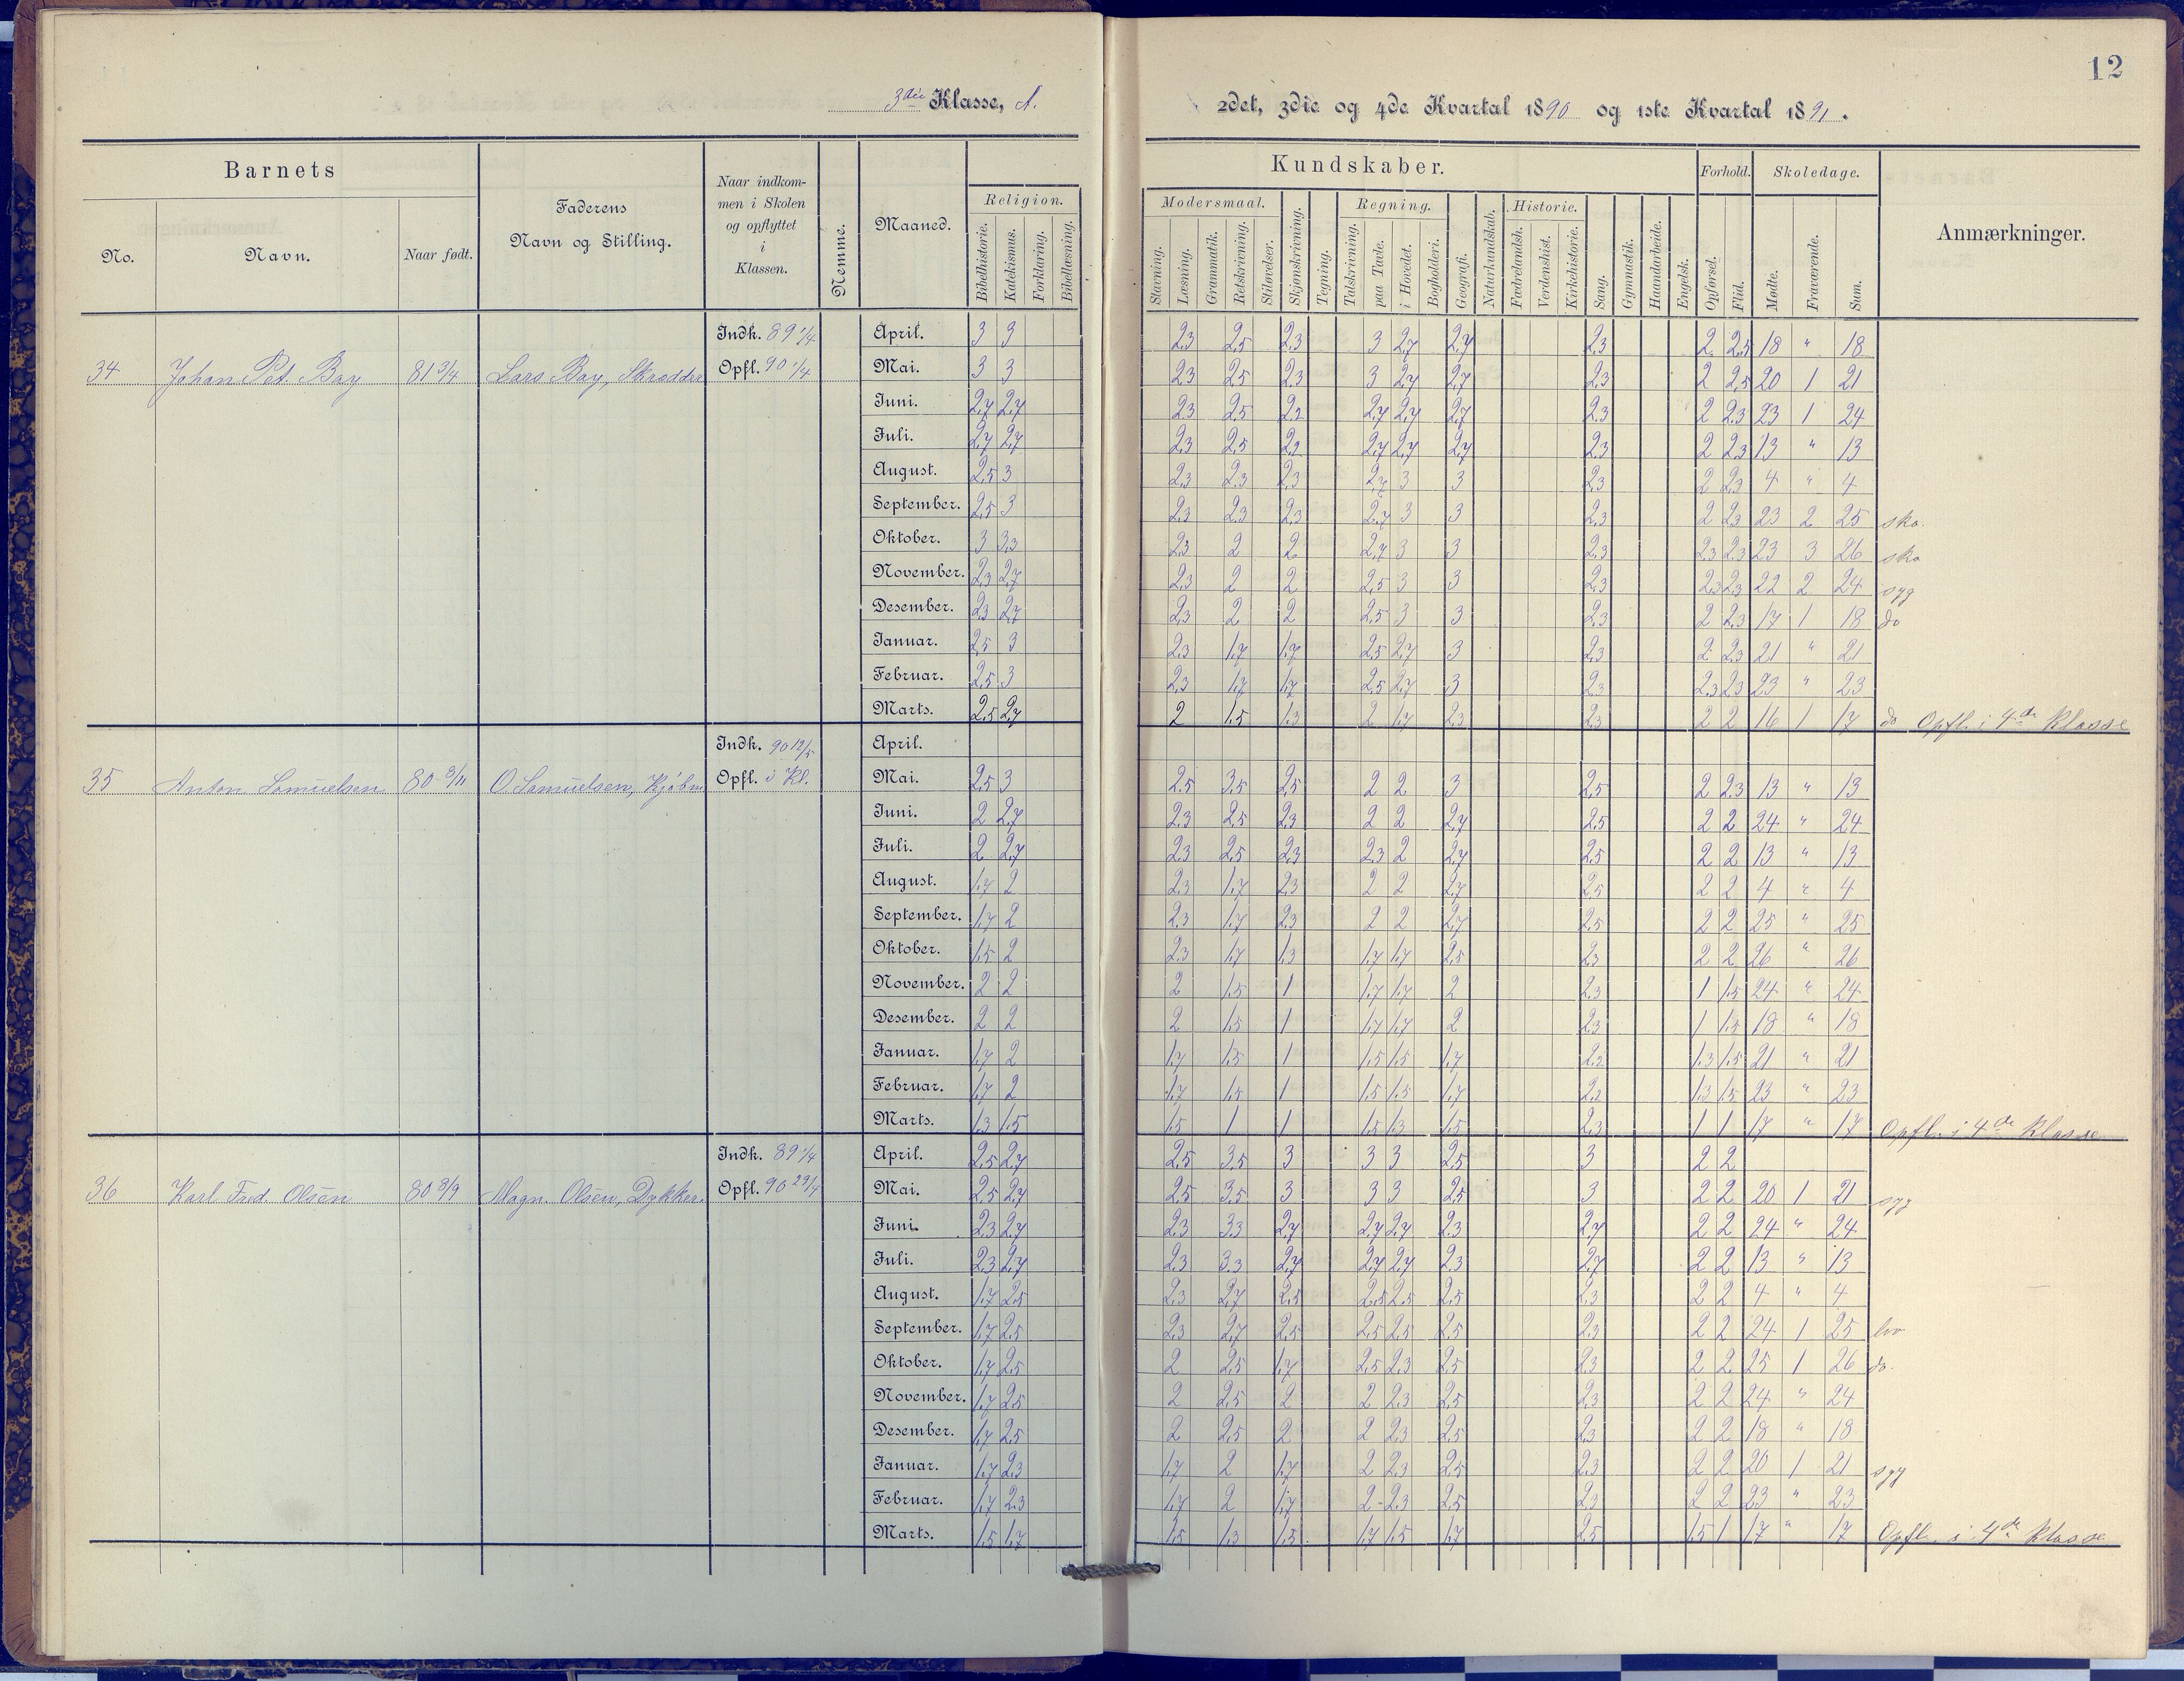 12
3die Klasse, A.
2det, 3die og 4de Kvartal 1890 og 1ste Kvartal 1891.
Barnets
No.
Navn.
Naar født.
Faderens
Navn og Stilling.
Naar indkom-
men i Skolen
og opflyttet
i
Klassen.
Nemme.
Maaned.
Religion.
Bibelhistorie.
Katekismus.
Forklaring.
Bibellæsning.
Kundskaber.
Modersmaal.
Stavning.
Læsning.
Grammatik.
Retskrivning.
Stiløvelser.
Skjønskrivning.
Tegning.
Regning.
Talskrivning.
paa Tavle.
i Hovedet.
Bogholderi.
Geografi.
Naturkundskab.
Historie.
Fædrelandsh.
Verdenshist.
Kirkehistorie.
Sang.
Gymnastik.
Haandarbeide.
Engelsk.
Forhold.
Opførsel.
Flid.
Skoledage.
Mødte.
Fraværende.
Sum.
Anmærkninger.
34 Johan Pet. Bay 81 3/4 Lars Bay, Skrædder Indk. 89 1/4 Opfl. 90 1/4
April. 3 3 2,3 2,5 2,3 3 2,7 2,7 2,3 2 2,5 18 " 18
Mai. 3 3 2,3 2,5 2,3 3 2,7 2,7 2,3 2 2,5 20 1 21
Juni. 2,7 2,7 2,3 2,5 2,2 2,7 2,7 2,7 2,3 2 2,3 23 1 24
Juli. 2,7 2,7 2,3 2,5 2,2 2,7 2,7 2,7 2,3 2 2,3 13 " 13
August. 2,5 3 2,3 2,3 2,3 2,7 3 3 2,3 2 2,3 4 " 4
September. 2,5 3 2,3 2,3 2,3 2,7 3 3 2,3 2 2,3 23 2 25 sko.
Oktober. 3 3,3 2,3 2 2 2,7 3 3 2,3 2,3 2,3 23 3 26 sko
November. 2,3 2,7 2,3 2 2 2,5 3 3 2,3 2,3 2,3 22 2 24 syg
Desember. 2,3 2,7 2,3 2 2 2,5 3 3 2,3 2 2,3 17 1 18 do
Januar. 2,5 3 2,3 1,7 1,7 2,5 2,7 3 2,3 2 2,3 21 " 21
Februar. 2,5 3 2,3 1,7 1,7 2,5 2,7 3 2,3 2,3 2,3 23 " 23
Marts. 2,5 2,7 2 1,5 1,3 2 1,7 2,3 2,3 2 2 16 1 17 do Opfl. i 4de Klasse
35 Anton Samuelsen 80 3/11 O. Samuelsen, Kjøbm Indk. 90 12/5 Opfl. i Kl.
April.
Mai. 2,5 3 2,5 3,5 2,5 2 2 3 2,5 2 2,3 13 " 13
Juni. 2 2,7 2,3 2,5 2,3 2 2 2,7 2,5 2 2 24 " 24
Juli. 2 2,7 2,3 2,5 2,3 2,3 2 2,7 2,5 2 2 13 " 13
August. 1,7 2 2,3 1,7 2,3 2 2 2,7 2,5 2 2 4 " 4
September. 1,7 2 2,3 1,7 2,3 2 2 2,7 2,5 2 2 25 " 25
Oktober. 1,5 2 2,3 1,7 1,3 1,7 1,7 2,5 2,3 2 2 26 " 26
November. 2 2 2 1,5 1 1,7 1,7 2 2,3 1 1,5 24 " 24
Desember. 2 2 2 1,5 1 1,7 1,7 2 2,3 1 1,5 18 " 18
Januar. 1,7 2 1,7 1,5 1 1,5 1,5 1,7 2,2 1,3 1,5 21 " 21
Februar. 1,7 2 1,7 1,5 1 1,5 1,5 1,7 2,2 1,3 1,5 23 " 23
Marts. 1,3 1,5 1,5 1 1 1,5 1,3 1,5 2,3 1 1 17 " 17 Opfl. i 4de Klasse
36 Karl Fred. Olsen 80 8/9 Magn. Olsen, Dykker. Indk. 89 1/4 Opfl. 90 29/4
April. 2,5 2,7 2,5 3,5 3 3 3 2,5 3 2 2
Mai. 2,5 2,7 2,5 3,5 3 3 3 2,5 3 2 2 20 1 21 syg
Juni. 2,3 2,7 2,3 3,3 2,7 2,7 2,7 2,3 2,7 2 2 24 " 24
Juli. 2,3 2,7 2,3 3,3 2,7 2,7 2,7 2,3 2,7 2 2 13 " 13
August. 1,7 2,5 2,3 2,7 2,5 2,5 2,5 2,5 2,3 2 2 4 " 4
September. 1,7 2,5 2,3 2,7 2,5 2,5 2,5 2,5 2,3 2 2 24 1 25 lov
Oktober. 1,7 2,5 2 2,5 1,7 2,5 2,3 2,5 2,3 2 2 25 1 26 do.
November. 1,7 2,5 2 2,5 2 2 2,3 2,5 2,3 2 2 24 " 24
Desember. 1,7 2,5 2 2,5 2 2 2,3 2,5 2,3 2 2 18 " 18
Januar. 1,7 2,3 1,7 2 1,7 2 2,3 2,5 2,3 2 2 20 1 21 syg
Februar. 1,7 2,3 1,7 2 1,7 2 2,3 2,5 2,3 2 2 23 " 23
Marts. 1,5 1,7 1,5 1,3 1,5 1,7 1,5 1,7 2,5 1,5 1 17 " 17 Opfl. i 4de Klasse